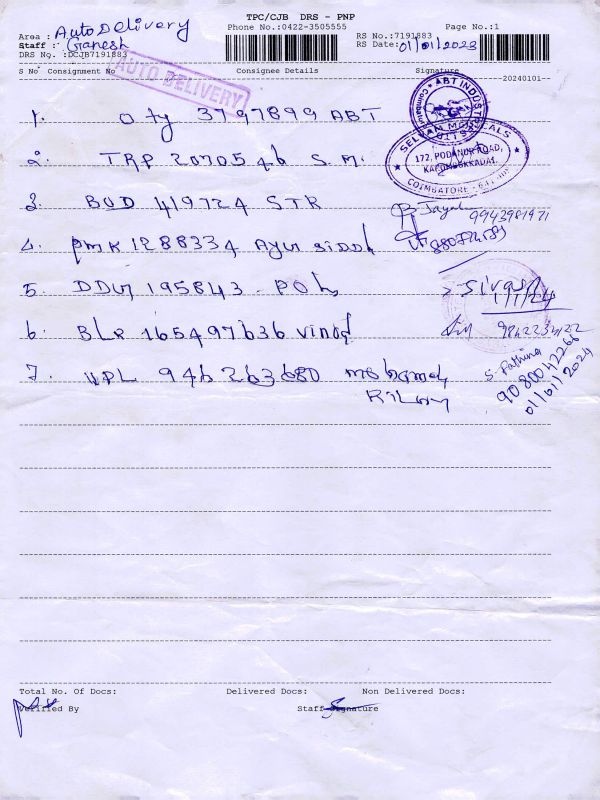 TPC/CJB DRS - PNP
Area : Auto Delivery Phone No.:0422-3505555 Page No.:1
Staff : Ganesh RS No.:7191883
DRS No. :DCJB7191883 RS Date: 01/01/2023
AUTO DELIVERY
S No Consignment No Consignee Details Signature
20240101
ABT INDUST
1. 3797899 ABT
SELVAM
172, PODANUR ROAD,
COIMBATORE
2. TRP 2070546 S.M.
3. BUD 419724 STR
9943981971
4. PMK 1288334 Ayur Siddh
5. DDU 195843 - POL
6. BLR 165497636 Vinod
9842234122
7. VPL 946263680
S. Fathima
9080042266
01/01/2024
Total No. Of Docs: Delivered Docs: Non Delivered Docs:
Verified By Staff Signature